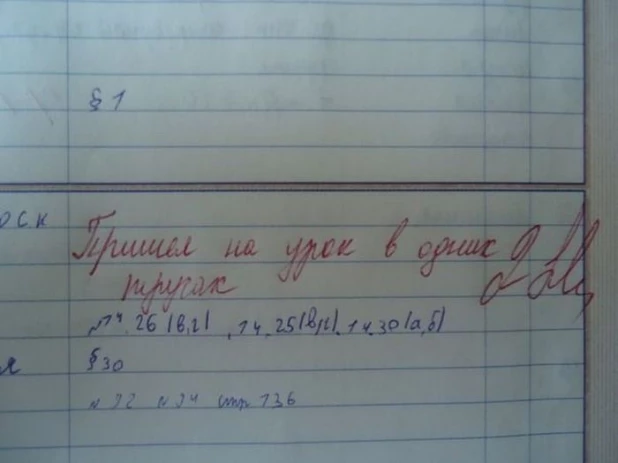 § 1
оск
Пришел на урок в одних
трусах
№14.26(в,г), 14.25(в,г), 14.30(а,б)
я §30
№ 92 № 94 стр 136